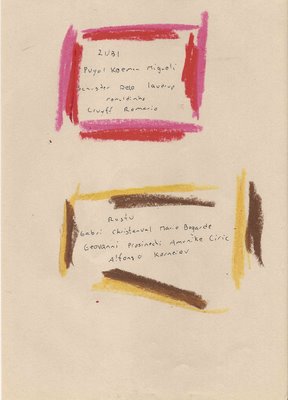 ZUBI
Puyol Koeman Migueli
Schuster Deco laudrup
ronaldinho
Cruyff Romario
Rustu
Gabri Christanval Mario Bogarde
Geovanni Prosinecki Amunike Ciric
Alfonso Korneiev